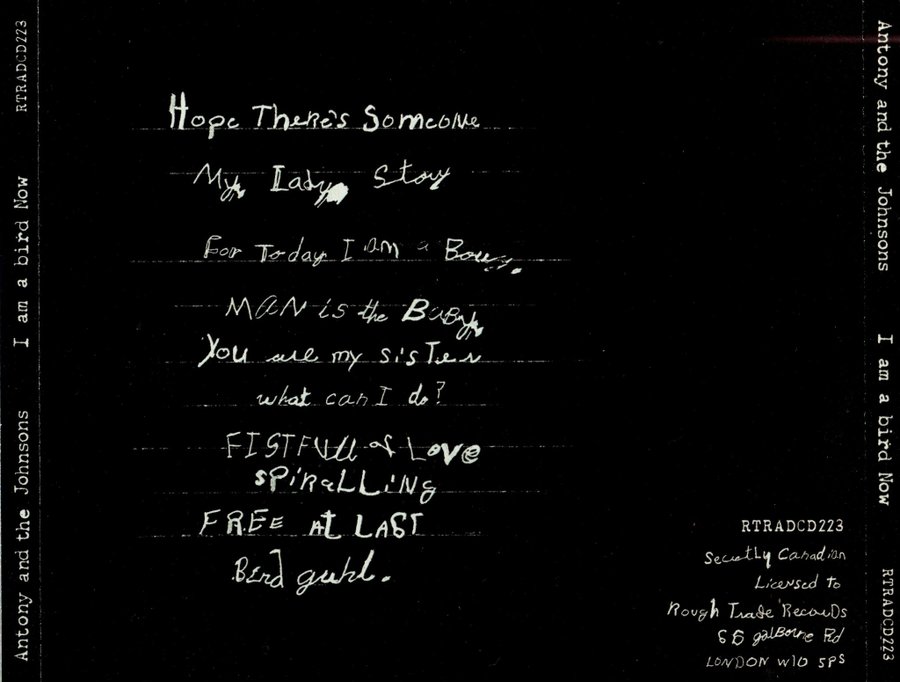 RTRADCD223
I am a bird Now
Antony and the Johnsons
Hope There's Someone
My Lady Story
For Today I am a Boy.
MAN is the BaBy
You are my sisTer
what can I do?
FISTFUll of Love
sPiRaLLiNg
FREE At LAST
Bird guhl.
RTRADCD223
Secretly Canadian
Licensed to
Rough Trade RecorDs
66 golBorne Rd
LONDON W10 5PS
Antony and the Johnsons
I am a bird Now
RTRADCD223